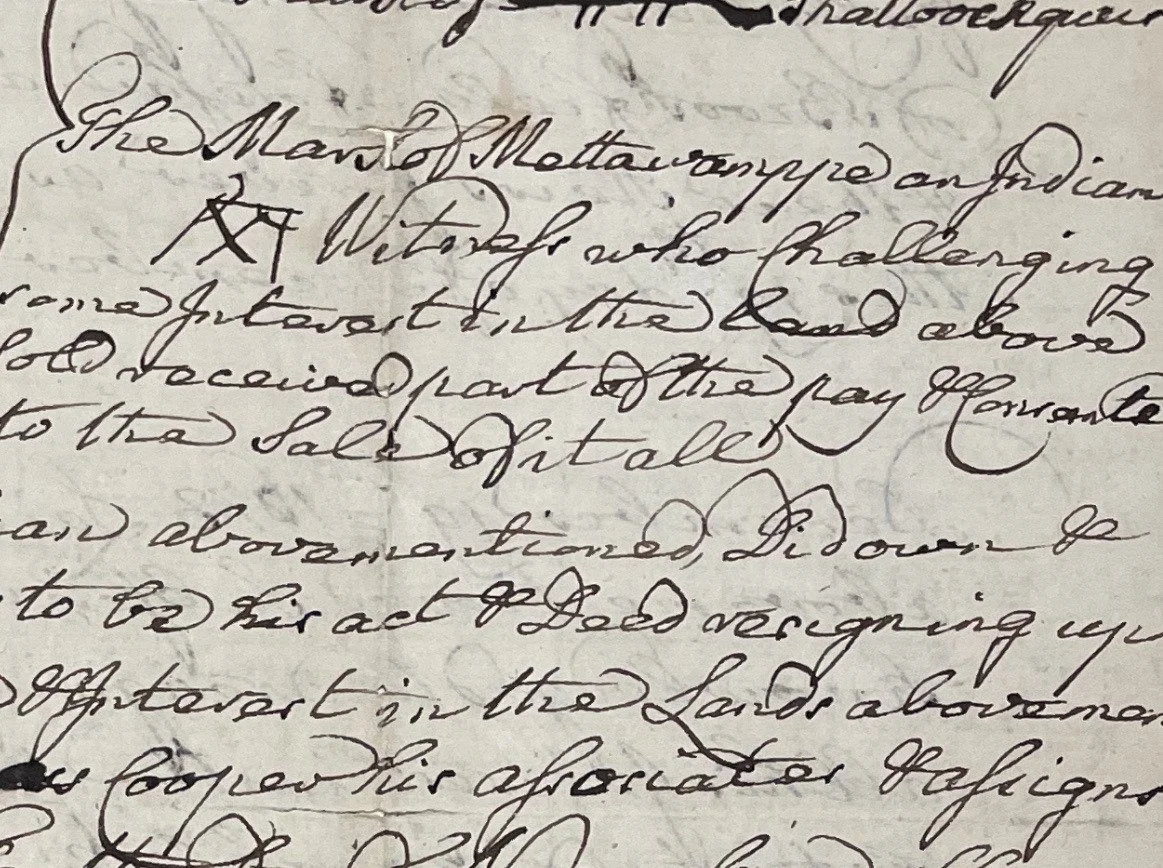 Shallooesquus
The Mark of Mettawamppe an Indian
Witness who Challenging
some Interest in the land above
sold received part of the pay & Consents
to the Sale of it all
abovementioned, Did own &
to be his act & Deed resigning up
& Interest in the Lands abovemen
Cooper his associates & assigns